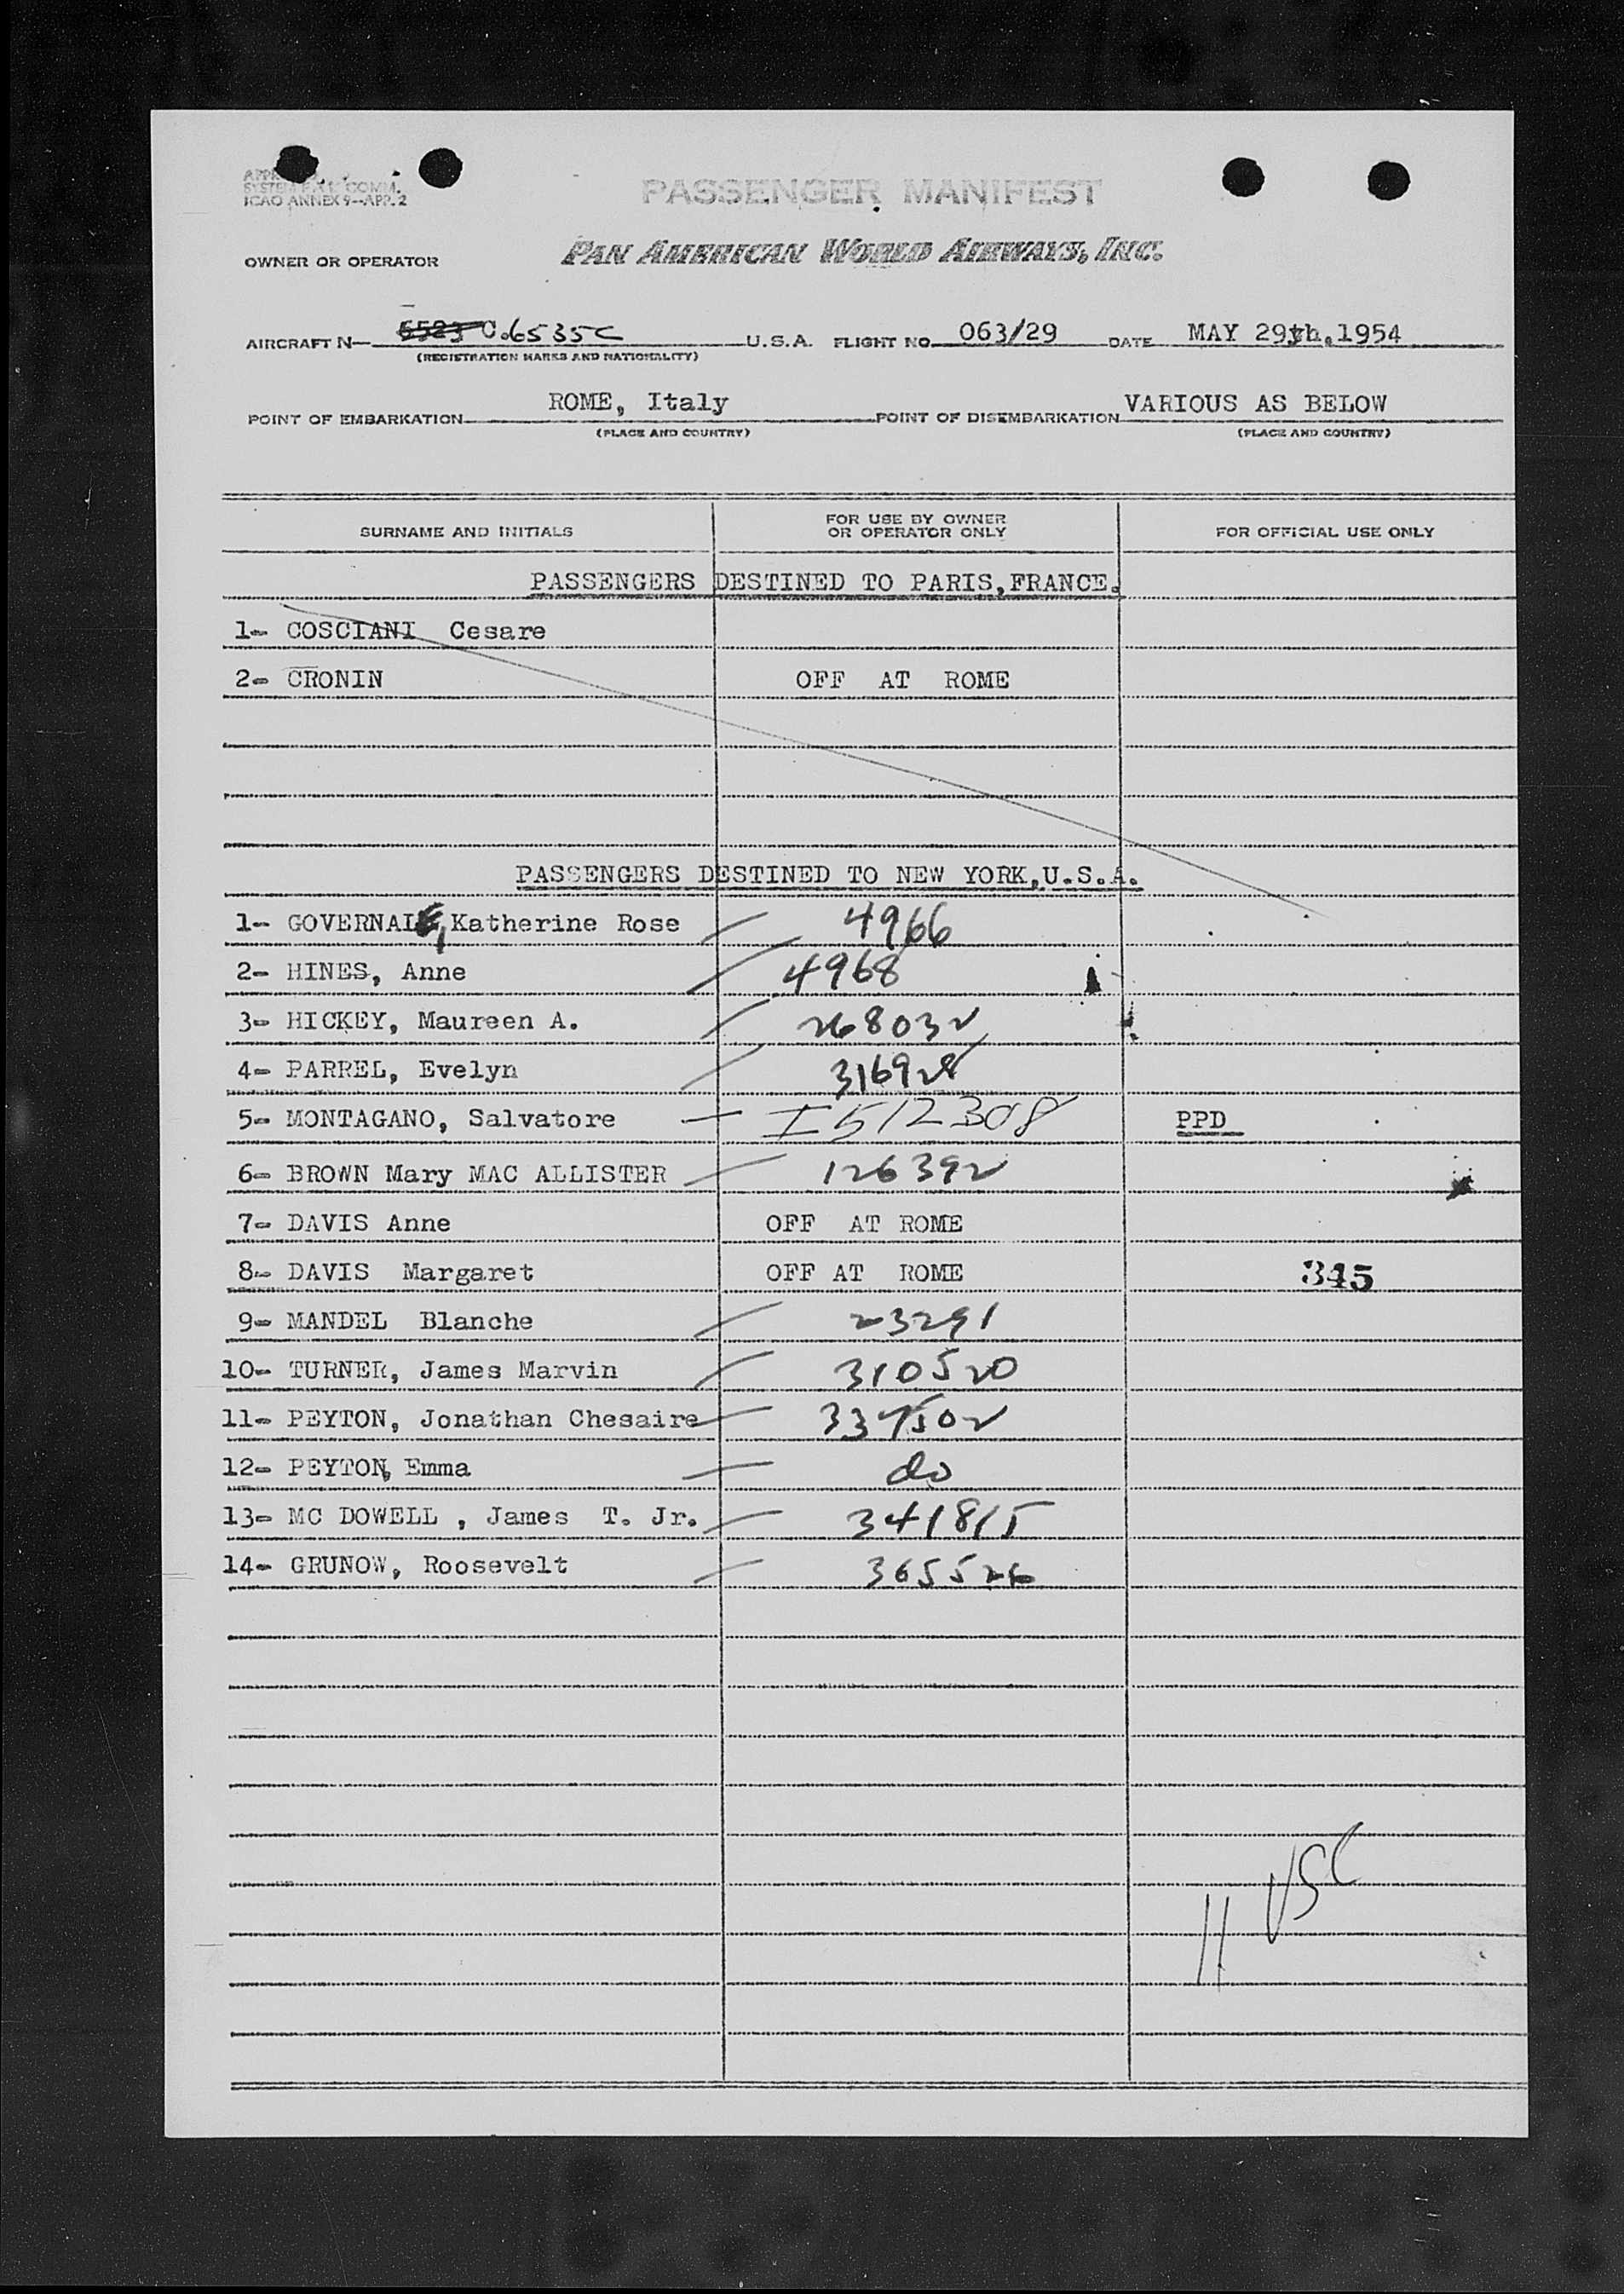 SYSTEM FAL COMM.
ICAO ANNEX 9--APP. 2
PASSENGER MANIFEST
OWNER OR OPERATOR PAN AMERICAN WORLD AIRWAYS, INC.
AIRCRAFT N— 6523 C.6535C U.S.A. FLIGHT NO. 063/29 DATE MAY 29th.1954
(REGISTRATION MARKS AND NATIONALITY)
POINT OF EMBARKATION ROME, Italy POINT OF DISEMBARKATION VARIOUS AS BELOW
(PLACE AND COUNTRY) (PLACE AND COUNTRY)
SURNAME AND INITIALS FOR USE BY OWNER OR OPERATOR ONLY FOR OFFICIAL USE ONLY
PASSENGERS DESTINED TO PARIS,FRANCE.
1- COSCIANI Cesare
2- CRONIN OFF AT ROME
PASSENGERS DESTINED TO NEW YORK,U.S.A.
1- GOVERNALE, Katherine Rose 4966
2- HINES, Anne 4968
3- HICKEY, Maureen A. 268032
4- PARREL, Evelyn 316928
5- MONTAGANO, Salvatore — I512308 PPD
6- BROWN Mary MAC ALLISTER 126392
7- DAVIS Anne OFF AT ROME
8- DAVIS Margaret OFF AT ROME 345
9- MANDEL Blanche 23291
10- TURNER, James Marvin 310520
11- PEYTON, Jonathan Chesaire 337502
12- PEYTON, Emma do
13- MC DOWELL , James T. Jr. 341815
14- GRUNOW, Roosevelt 365526
11 USC